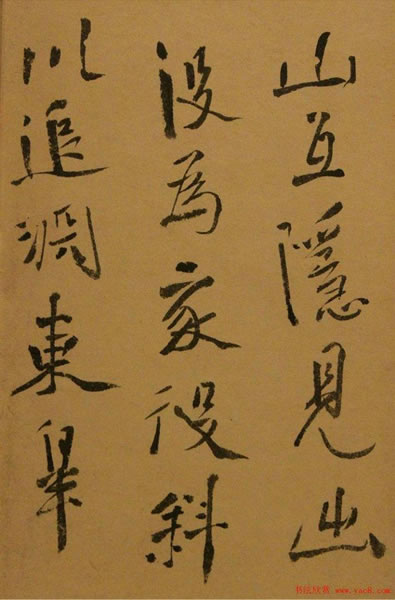 山互隱見出
没為家役斜
川追東皋
书法欣赏 www.yac8.com